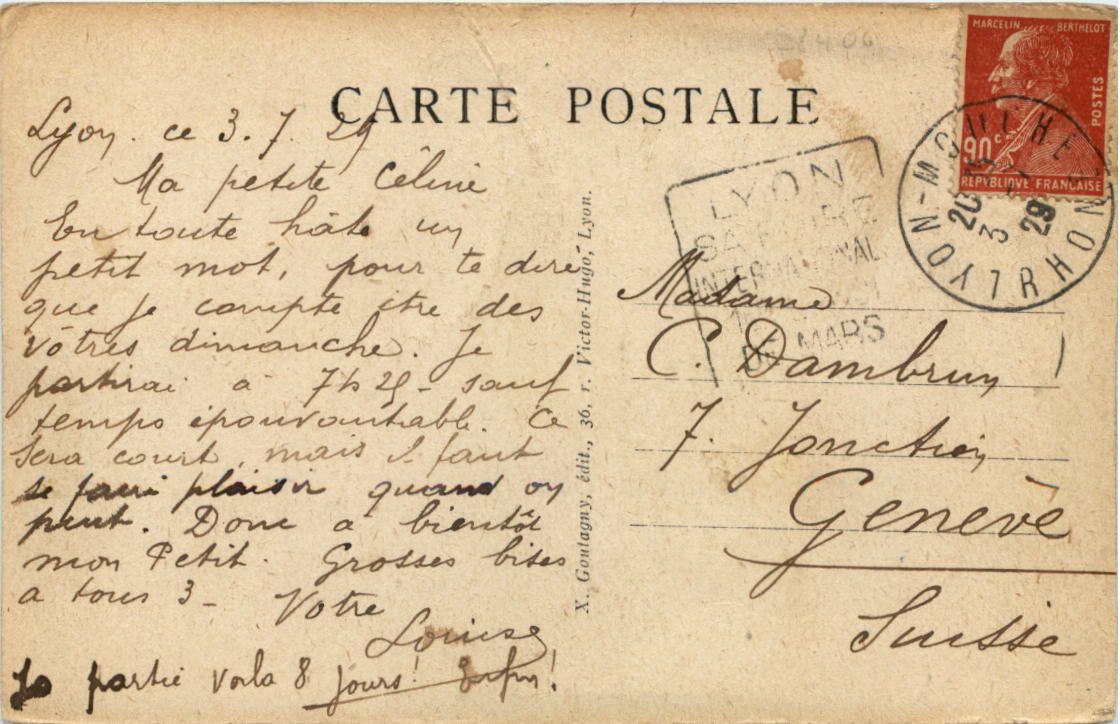 CARTE POSTALE
Lyon. ce 3.7.29
Ma petite Céline
En toute hâte un
petit mot, pour te dire
que je compte être des
vôtres dimanche. Je
partirai à 7h25 - sauf
temps épouvantable. Ce
sera court, mais il faut
se faire plaisir quand on
peut. Donc à bientôt
mon Petit. Grosses bises
a tous 3 - Votre
Louise
partie voila 8 jours! Enfin!
X. Goutagny, édit., 36, r. Victor-Hugo, Lyon.
MARCELIN BERTHELOT
POSTES
90c
REPVBLIQVE FRANÇAISE
LYON-MONCHAT RHONE
20
3
29
LYON
SA FOIRE
INTERNATIONALE
DE MARS
Madame
C. Dambrun
7. Jonction
Genève
Suisse